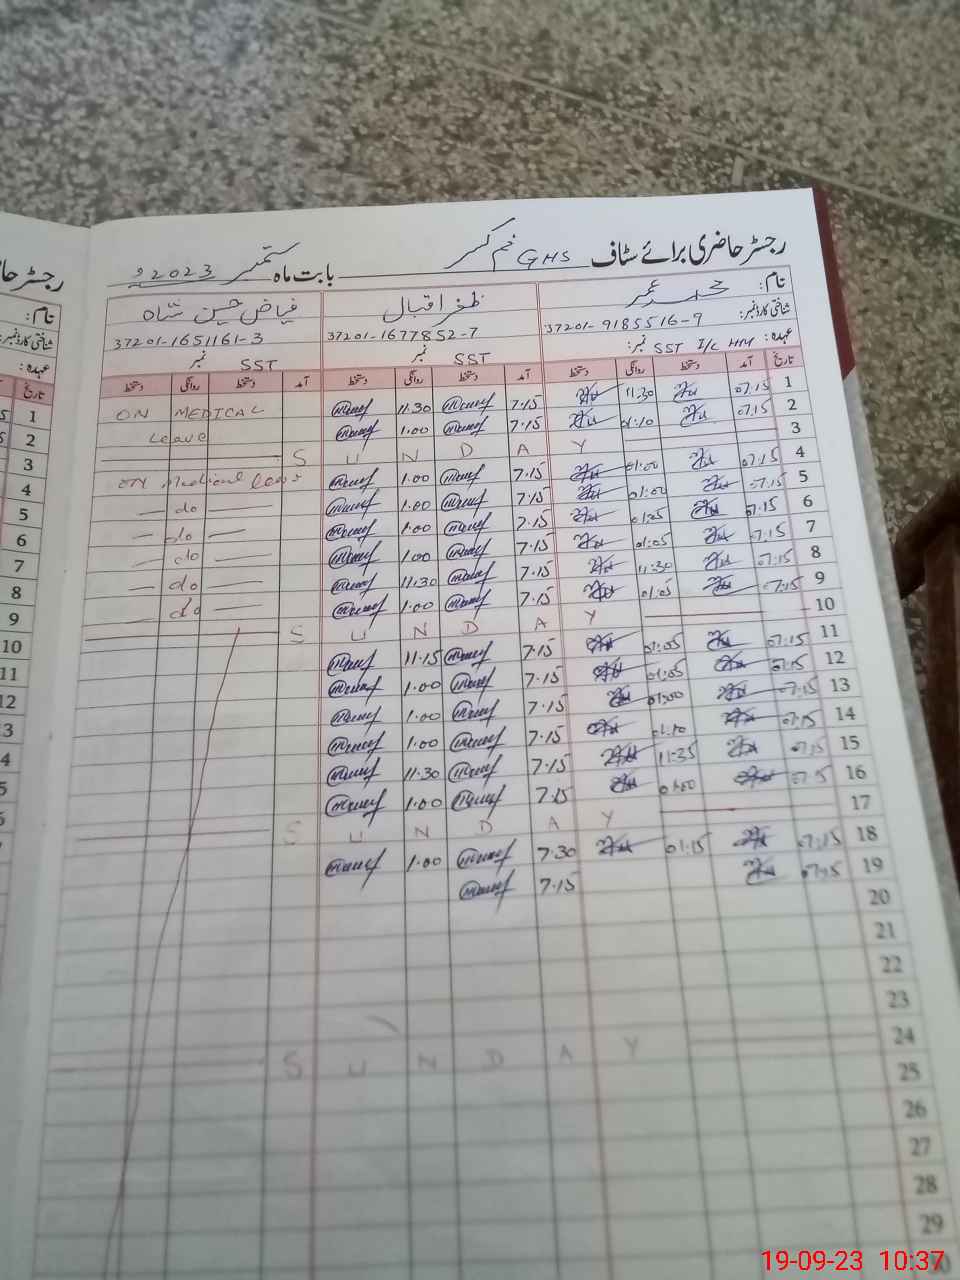 رجسٹر حاضری برائے سٹاف GHS بابت ماہ ستمبر 2023ء
نام: محمد عمر ظفر اقبال فیاض حسین شاہ
شناختی کارڈ نمبر: 37201-9185516-9 37201-1677852-7 37201-1651161-3
عہدہ: SST I/C HM نمبر: SST نمبر SST نمبر
تاریخ آمد دستخط روانگی دستخط آمد دستخط روانگی دستخط آمد دستخط روانگی دستخط
1 07:15 11:30 7.15 11.30 ON MEDICAL
2 07:15 01:10 7.15 1.00 Leave
3 S U N D A Y
4 07:15 01:00 7.15 1.00 ON Medical leave
5 07:15 01:00 7.15 1.00 — do —
6 07:15 01:05 7.15 1.00 — do —
7 07:15 01:05 7.15 1.00 — do —
8 07:15 11:30 7.15 11.30 — do —
9 07:15 01:05 7.15 1.00 do —
10 S U N D A Y
11 07:15 01:05 7.15 11.15
12 07:15 01:05 7.15 1.00
13 07:15 01:00 7.15 1.00
14 07:15 01:10 7.15 1.00
15 07:15 11:35 7.15 11.30
16 07:15 01:00 7.15 1.00
17 S U N D A Y
18 07:15 01:15 7.30 1.00
19 07:15 7.15
20
21
22
23
24 S U N D A Y
25
26
27
28
29
نام:
شناختی کارڈ نمبر:
عہدہ:
تاریخ
1
2
3
4
5
6
7
8
9
10
11
19-09-23 10:37